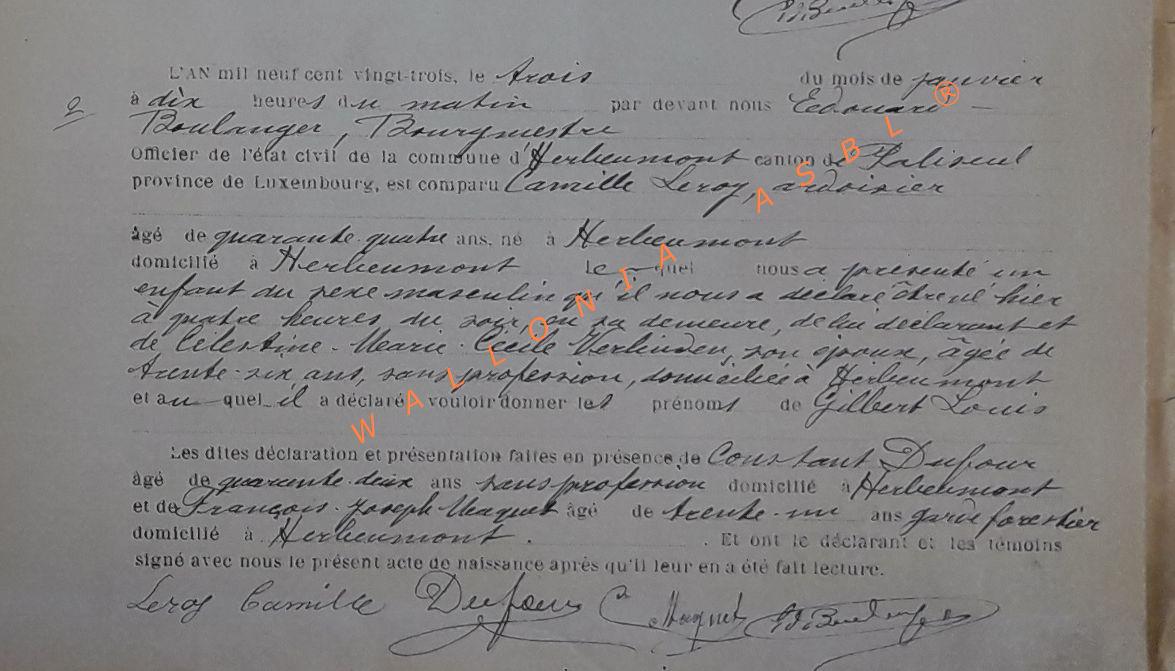 L'AN mil neuf cent vingt-trois, le trois du mois de janvier
2
à dix heures du matin par devant nous Edouard
Boulanger, Bourgmestre
Officier de l'état civil de la commune d'Herbeumont canton de Paliseul
province de Luxembourg, est comparu Camille Leroy, ardoisier
âgé de quarante-quatre ans, né à Herbeumont
domicilié à Herbeumont lequel nous a présenté un
enfant du sexe masculin qu'il nous a déclaré être né hier
à quatre heures du soir, en sa demeure, de lui déclarant et
de Célestine-Marie-Cécile Verlinden, son époux, âgée de
trente-six ans, sans profession, domiciliée à Herbeumont
et auquel il a déclaré vouloir donner les prénoms de Gilbert Louis
Les dites déclaration et présentation faites en présence de Constant Dufour
âgé de quarente-deux ans sans profession domicilié à Herbeumont
et de François-Joseph Maquet âgé de trente-un ans garde forestier
domicilié à Herbeumont. Et ont le déclarant et les témoins
signé avec nous le présent acte de naissance après qu'il leur en a été fait lecture.
Leroy Camille Dufour Maquet Ed. Boulanger
WALLONIA ASBL®